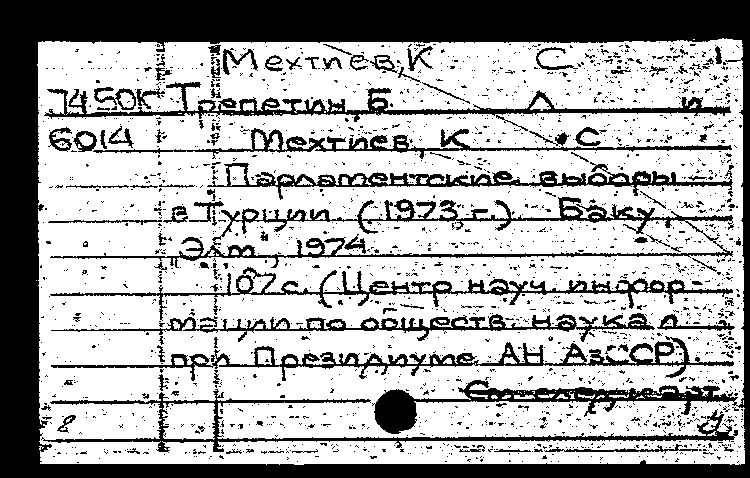 Мехтиев, К С 1
J450К Трепетин, Б Л и
6014 Мехтиев, К С
Парламентские выборы
в Турции (1973 г.). Баку,
"Элм", 1974.
167 с. (Центр науч. инфор-
мации по обществ. наукам
при Президиуме АН АзССР).
См. след. карт.
8